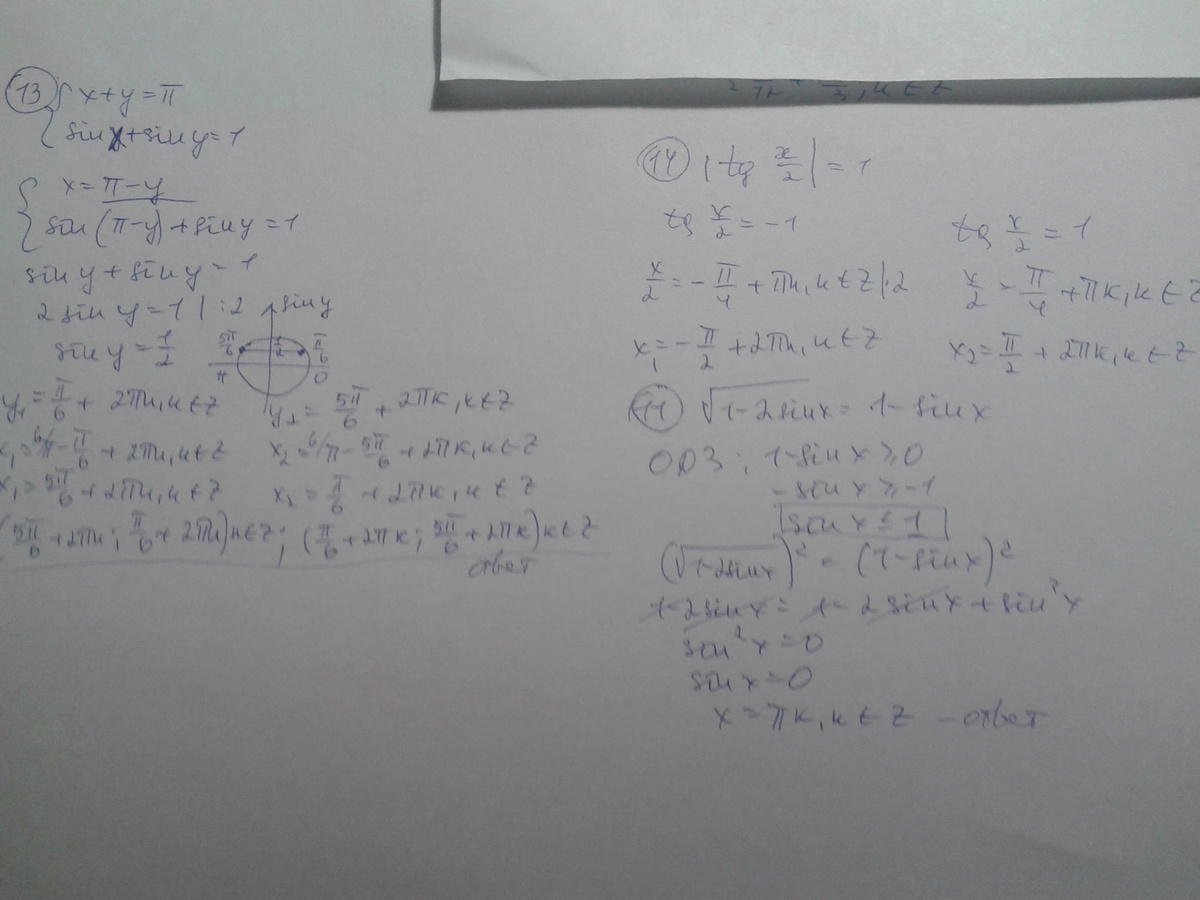 13) { x+y=π
sinx+siny=1
{ x=π-y
sin(π-y)+siny=1
siny+siny=1
2siny=1 |:2
siny=1/2
sin y
5π/6 1/2 π/6
π 0
y₁=π/6+2πn, n∈Z y₂=5π/6+2πk, k∈Z
x₁=π-π/6+2πn, n∈Z x₂=π-5π/6+2πk, k∈Z
x₁=5π/6+2πn, n∈Z x₂=π/6+2πk, k∈Z
(5π/6+2πn; π/6+2πn) n∈Z; (π/6+2πk; 5π/6+2πk) k∈Z
ответ
14) |tg x/2|=1
tg x/2=-1 tg x/2=1
x/2=-π/4+πn, n∈Z |·2 x/2=π/4+πk, k∈Z
x₁=-π/2+2πn, n∈Z x₂=π/2+2πk, k∈Z
11) √1-2sinx=1-sinx
ОДЗ: 1-sinx≥0
-sinx≥-1
sinx≤1
(√1-2sinx)²=(1-sinx)²
1-2sinx=1-2sinx+sin²x
sin²x=0
sinx=0
x=πk, k∈Z - ответ